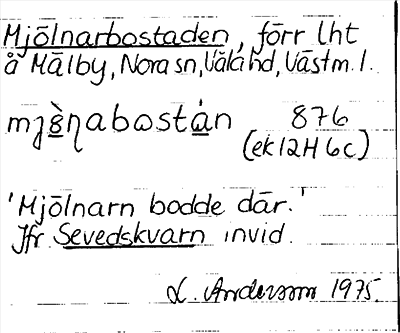 Mjölnarbostaden, förr lht
å Mälby, Nora sn, Våla hd, Västm. l.
876
(ek 12H 6c)
'Mjölnarn bodde där.'
Jfr Sevedskvarn invid.
L. Andersson 1975